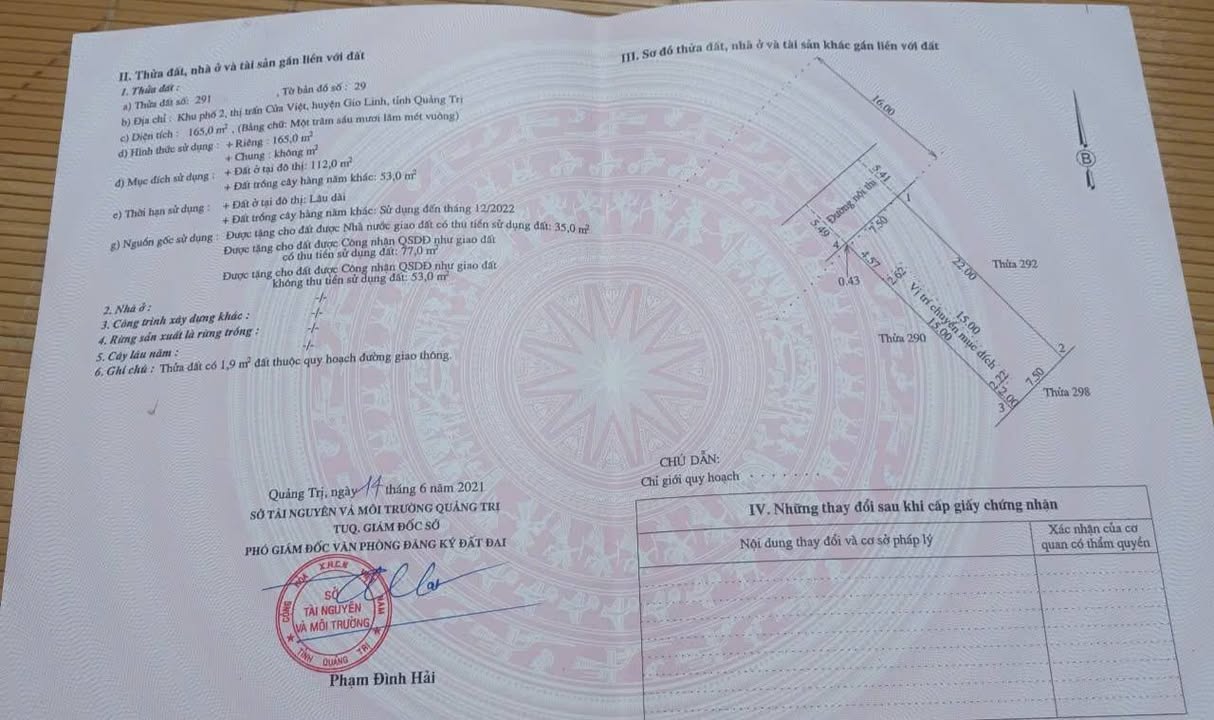 II. Thửa đất, nhà ở và tài sản gắn liền với đất
1. Thửa đất :
a) Thửa đất số: 291 , Tờ bản đồ số : 29
b) Địa chỉ : Khu phố 2, thị trấn Cửa Việt, huyện Gio Linh, tỉnh Quảng Trị
c) Diện tích : 165,0 m² , (Bằng chữ: Một trăm sáu mươi lăm mét vuông)
d) Hình thức sử dụng : + Riêng : 165,0 m²
+ Chung : không m²
đ) Mục đích sử dụng : + Đất ở tại đô thị: 112,0 m²
+ Đất trồng cây hàng năm khác: 53,0 m²
e) Thời hạn sử dụng : + Đất ở tại đô thị: Lâu dài
+ Đất trồng cây hàng năm khác: Sử dụng đến tháng 12/2022
g) Nguồn gốc sử dụng : Được tặng cho đất được Nhà nước giao đất có thu tiền sử dụng đất: 35,0 m²
Được tặng cho đất được Công nhận QSDĐ như giao đất
có thu tiền sử dụng đất: 77,0 m²
Được tặng cho đất được Công nhận QSDĐ như giao đất
không thu tiền sử dụng đất: 53,0 m²
2. Nhà ở : -/-
3. Công trình xây dựng khác : -/-
4. Rừng sản xuất là rừng trồng : -/-
5. Cây lâu năm : -/-
6. Ghi chú : Thửa đất có 1,9 m² đất thuộc quy hoạch đường giao thông.
Quảng Trị, ngày 14 tháng 6 năm 2021
SỞ TÀI NGUYÊN VÀ MÔI TRƯỜNG QUẢNG TRỊ
TUQ. GIÁM ĐỐC SỞ
PHÓ GIÁM ĐỐC VĂN PHÒNG ĐĂNG KÝ ĐẤT ĐAI
CỘNG HÒA X.H.C.N VIỆT NAM
SỞ
TÀI NGUYÊN
VÀ MÔI TRƯỜNG
TỈNH QUẢNG TRỊ
Phạm Đình Hải
III. Sơ đồ thửa đất, nhà ở và tài sản khác gắn liền với đất
16.00
B
5.41
Đường nội thị
1
7.50
5.49
4
4.57
0.43
2.62
22.00
Thửa 292
Vị trí chuyển mục đích
15.00
15.00
Thửa 290
2
7.50
Thửa 298
22.00
3
CHỦ DẪN:
Chỉ giới quy hoạch
IV. Những thay đổi sau khi cấp giấy chứng nhận
Nội dung thay đổi và cơ sở pháp lý
Xác nhận của cơ
quan có thẩm quyền